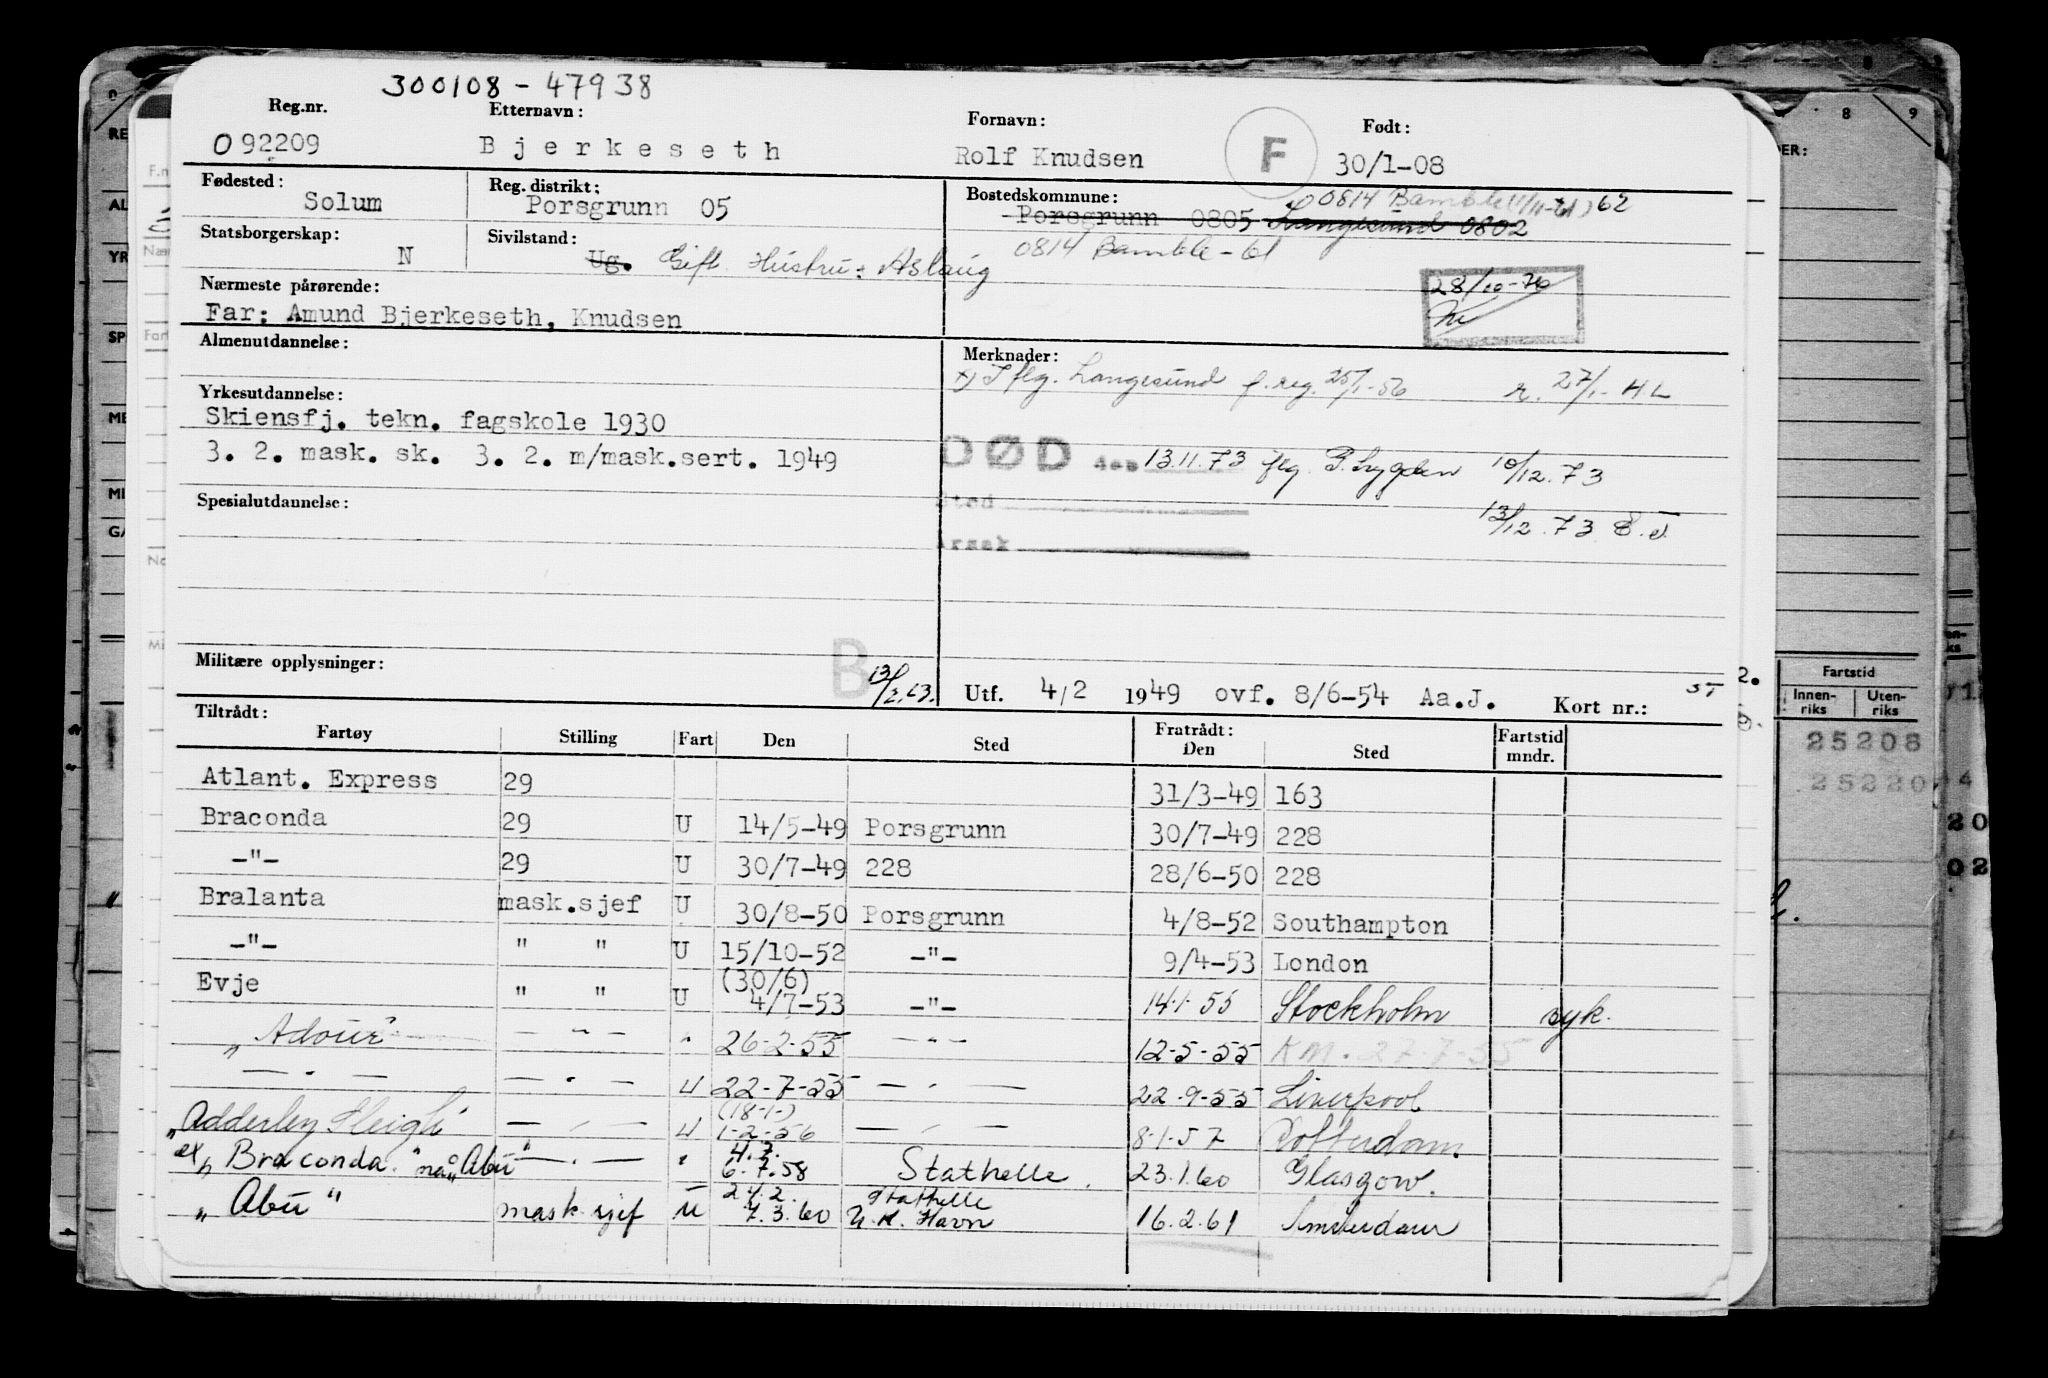 300108 - 47938
Reg.nr. Etternavn: Fornavn: Født:
092209 Bjerkeseth Rolf Knudsen F 30/1-08
Fødested: Reg. distrikt: Bostedskommune:
Solum Porsgrunn 05 Porsgrunn 0805 Langesund 0802 0814 Bamble (1/11-61) 62
Statsborgerskap: Sivilstand:
N Ug. Gift Hustru: Aslaug 0814 Bamble - 61
Nærmeste pårørende: 28/10-76
Far: Amund Bjerkeseth, Knudsen
Almenutdannelse: Merknader:
x) Iflg. Langesund f.reg. 25/1-56 r. 27/1- H.L
Yrkesutdannelse:
Skiensfj. tekn. fagskole 1930
3. 2. mask. sk. 3. 2. m/mask.sert. 1949
DØD den 13.11.73 flg. P. Lygden 10/12.73
Spesialutdannelse: Sted
13/12.73
Årsak
Militære opplysninger: B 13/2.63.
Utf. 4/2 1949 ovf. 8/6-54 Aa.J. Kort nr.:
Tiltrådt: Fratrådt:
Fartøy Stilling Fart Den Sted Den Sted Fartstid mndr.
Atlant. Express 29 31/3-49 163
Braconda 29 U 14/5-49 Porsgrunn 30/7-49 228
-"- 29 U 30/7-49 228 28/6-50 228
Bralanta mask.sjef U 30/8-50 Porsgrunn 4/8-52 Southampton
-"- " " U 15/10-52 -"- 9/4-53 London
Evje " " U (30/6) 4/7-53 -"- 14.1.55 Stockholm syk.
"Adour" - " - " 26-2-55 - " - 12-5-55 KM. 27-7-55
- " - - " - U 22-7-55 - " - 22-9-55 Liverpool
"Adderley Sleigh - " - U (18-1-) 1-2-56 - " - 8.1.57 Rotterdam.
ex "Braconda" nå "Abu" - " - " 4.7. 6.7.58 Stathelle. 23.1.60 Glasgow.
"Abu" mask.sjef U 24.2. 7.3.60 Stathelle U.K. Havn 16.2.61 Amsterdam
Fartstid
Innen-riks Uten-riks
25208
25220